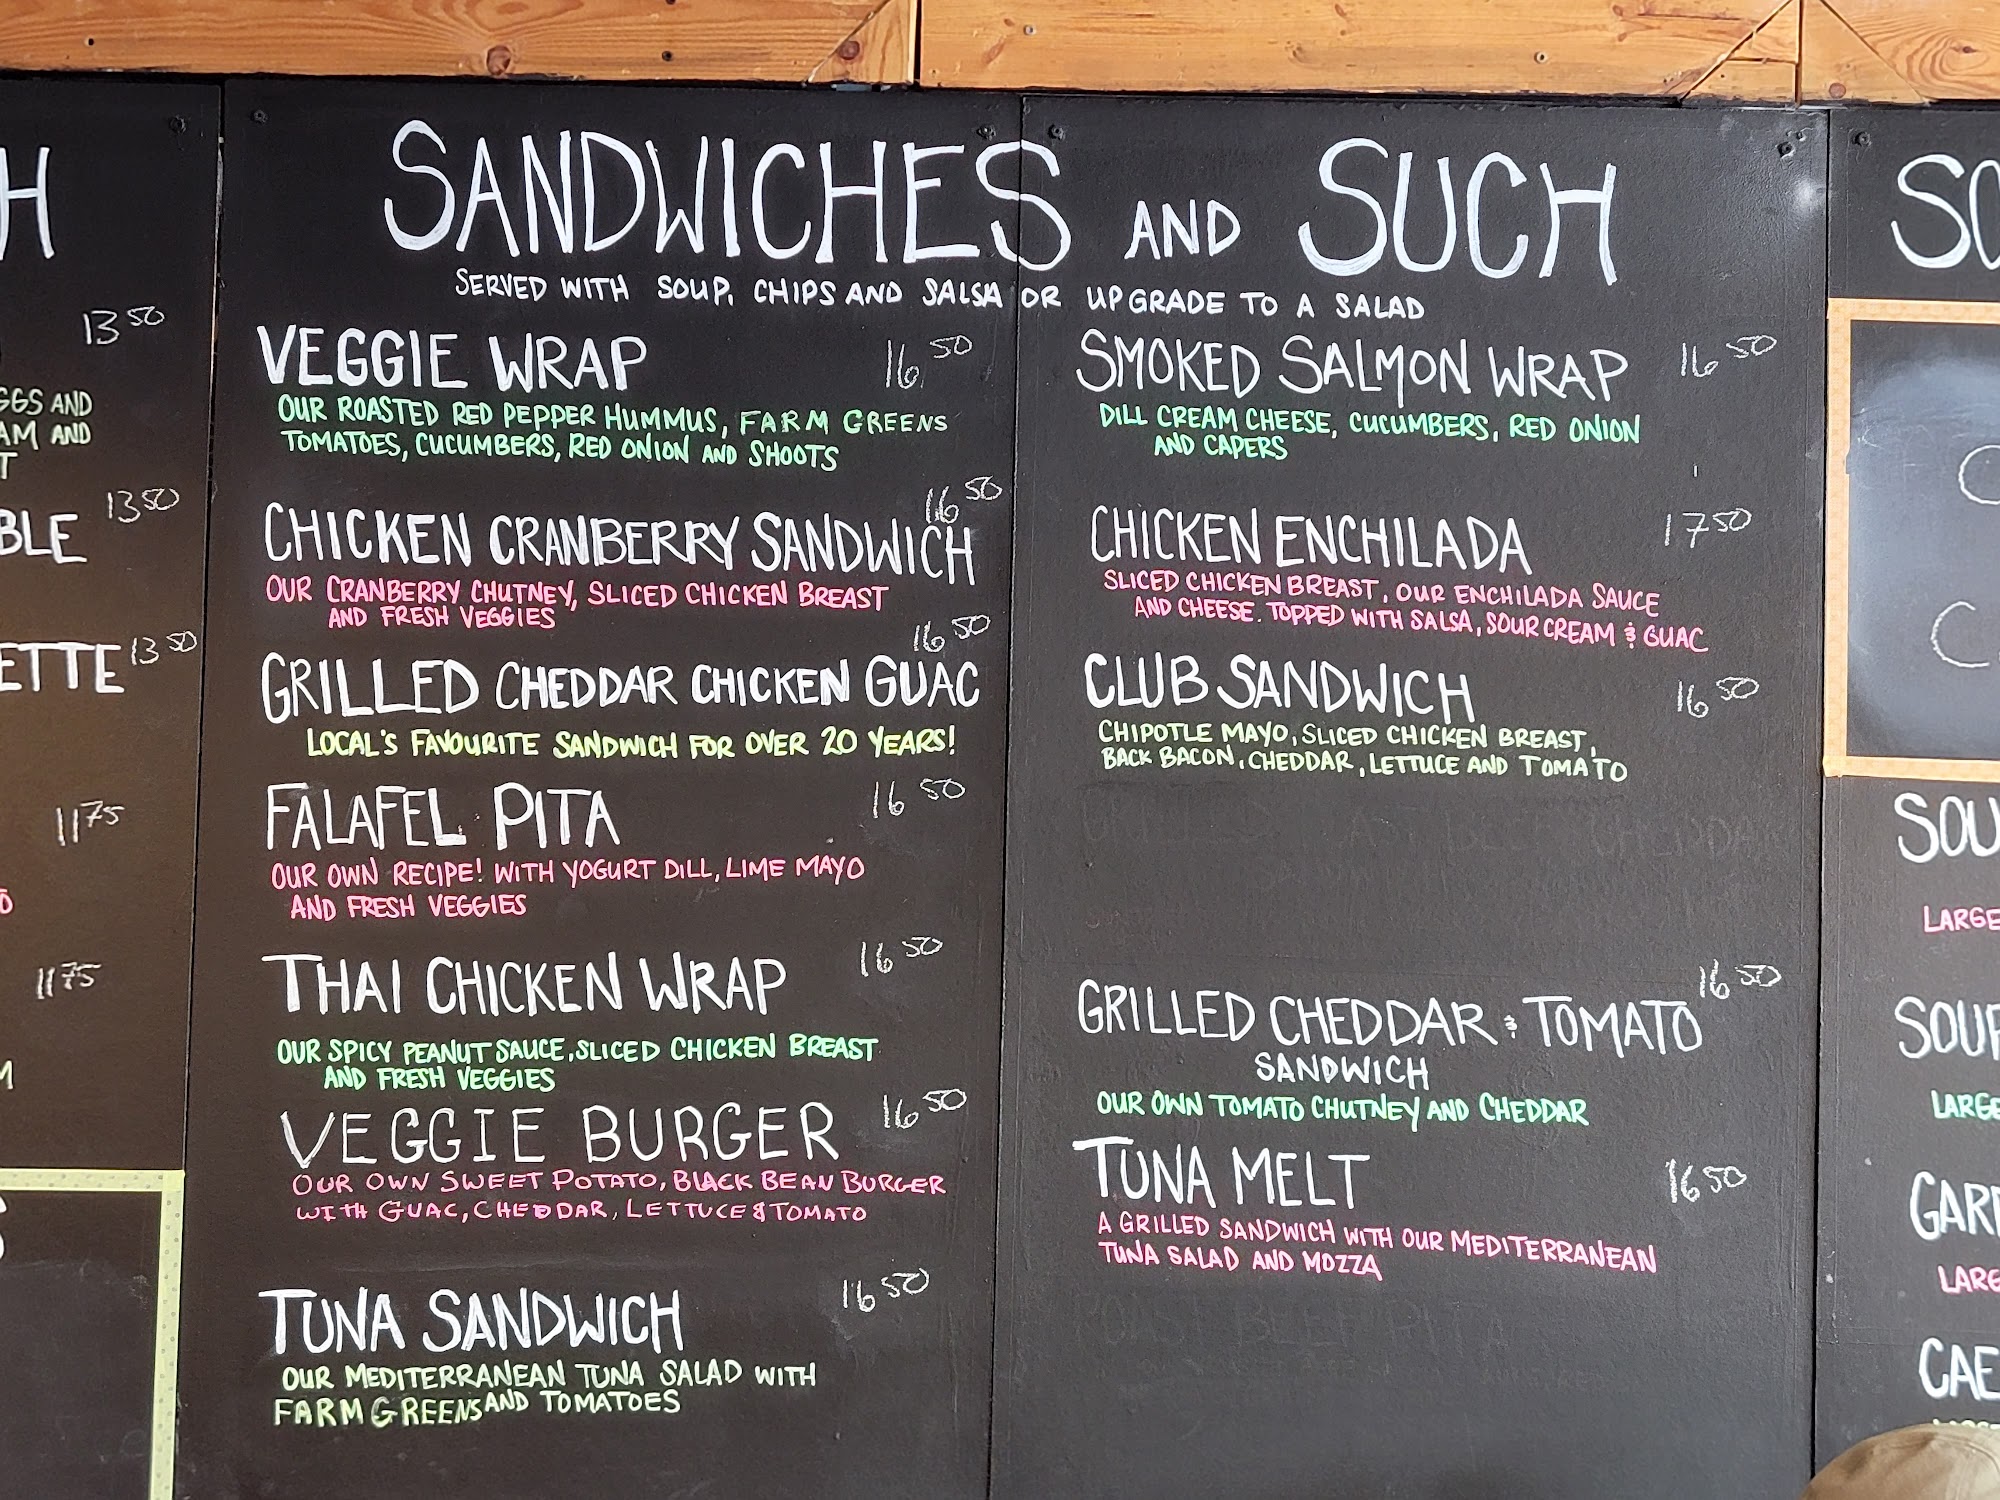 H
13 50
GGS AND
AM AND
T
BLE 13 50
ETTE 13 50
11 75
11 75
M
S
SANDWICHES AND SUCH
SERVED WITH SOUP, CHIPS AND SALSA OR UPGRADE TO A SALAD
VEGGIE WRAP 16 50
OUR ROASTED RED PEPPER HUMMUS, FARM GREENS
TOMATOES, CUCUMBERS, RED ONION AND SHOOTS
16 50
CHICKEN CRANBERRY SANDWICH
OUR CRANBERRY CHUTNEY, SLICED CHICKEN BREAST
AND FRESH VEGGIES
16 50
GRILLED CHEDDAR CHICKEN GUAC
LOCAL'S FAVOURITE SANDWICH FOR OVER 20 YEARS!
FALAFEL PITA 16 50
OUR OWN RECIPE! WITH YOGURT DILL, LIME MAYO
AND FRESH VEGGIES
THAI CHICKEN WRAP 16 50
OUR SPICY PEANUT SAUCE, SLICED CHICKEN BREAST
AND FRESH VEGGIES
VEGGIE BURGER 16 50
OUR OWN SWEET POTATO, BLACK BEAN BURGER
WITH GUAC, CHEDDAR, LETTUCE & TOMATO
TUNA SANDWICH 16 50
OUR MEDITERRANEAN TUNA SALAD WITH
FARM GREENS AND TOMATOES
SMOKED SALMON WRAP 16 50
DILL CREAM CHEESE, CUCUMBERS, RED ONION
AND CAPERS
CHICKEN ENCHILADA 17 50
SLICED CHICKEN BREAST, OUR ENCHILADA SAUCE
AND CHEESE. TOPPED WITH SALSA, SOUR CREAM & GUAC
CLUB SANDWICH 16 50
CHIPOTLE MAYO, SLICED CHICKEN BREAST,
BACK BACON, CHEDDAR, LETTUCE AND TOMATO
GRILLED CHEDDAR & TOMATO 16 50
SANDWICH
OUR OWN TOMATO CHUTNEY AND CHEDDAR
TUNA MELT 16 50
A GRILLED SANDWICH WITH OUR MEDITERRANEAN
TUNA SALAD AND MOZZA
SO
C
C
SOU
LARGE
SOUP
LARGE
GARD
LARG
CAE